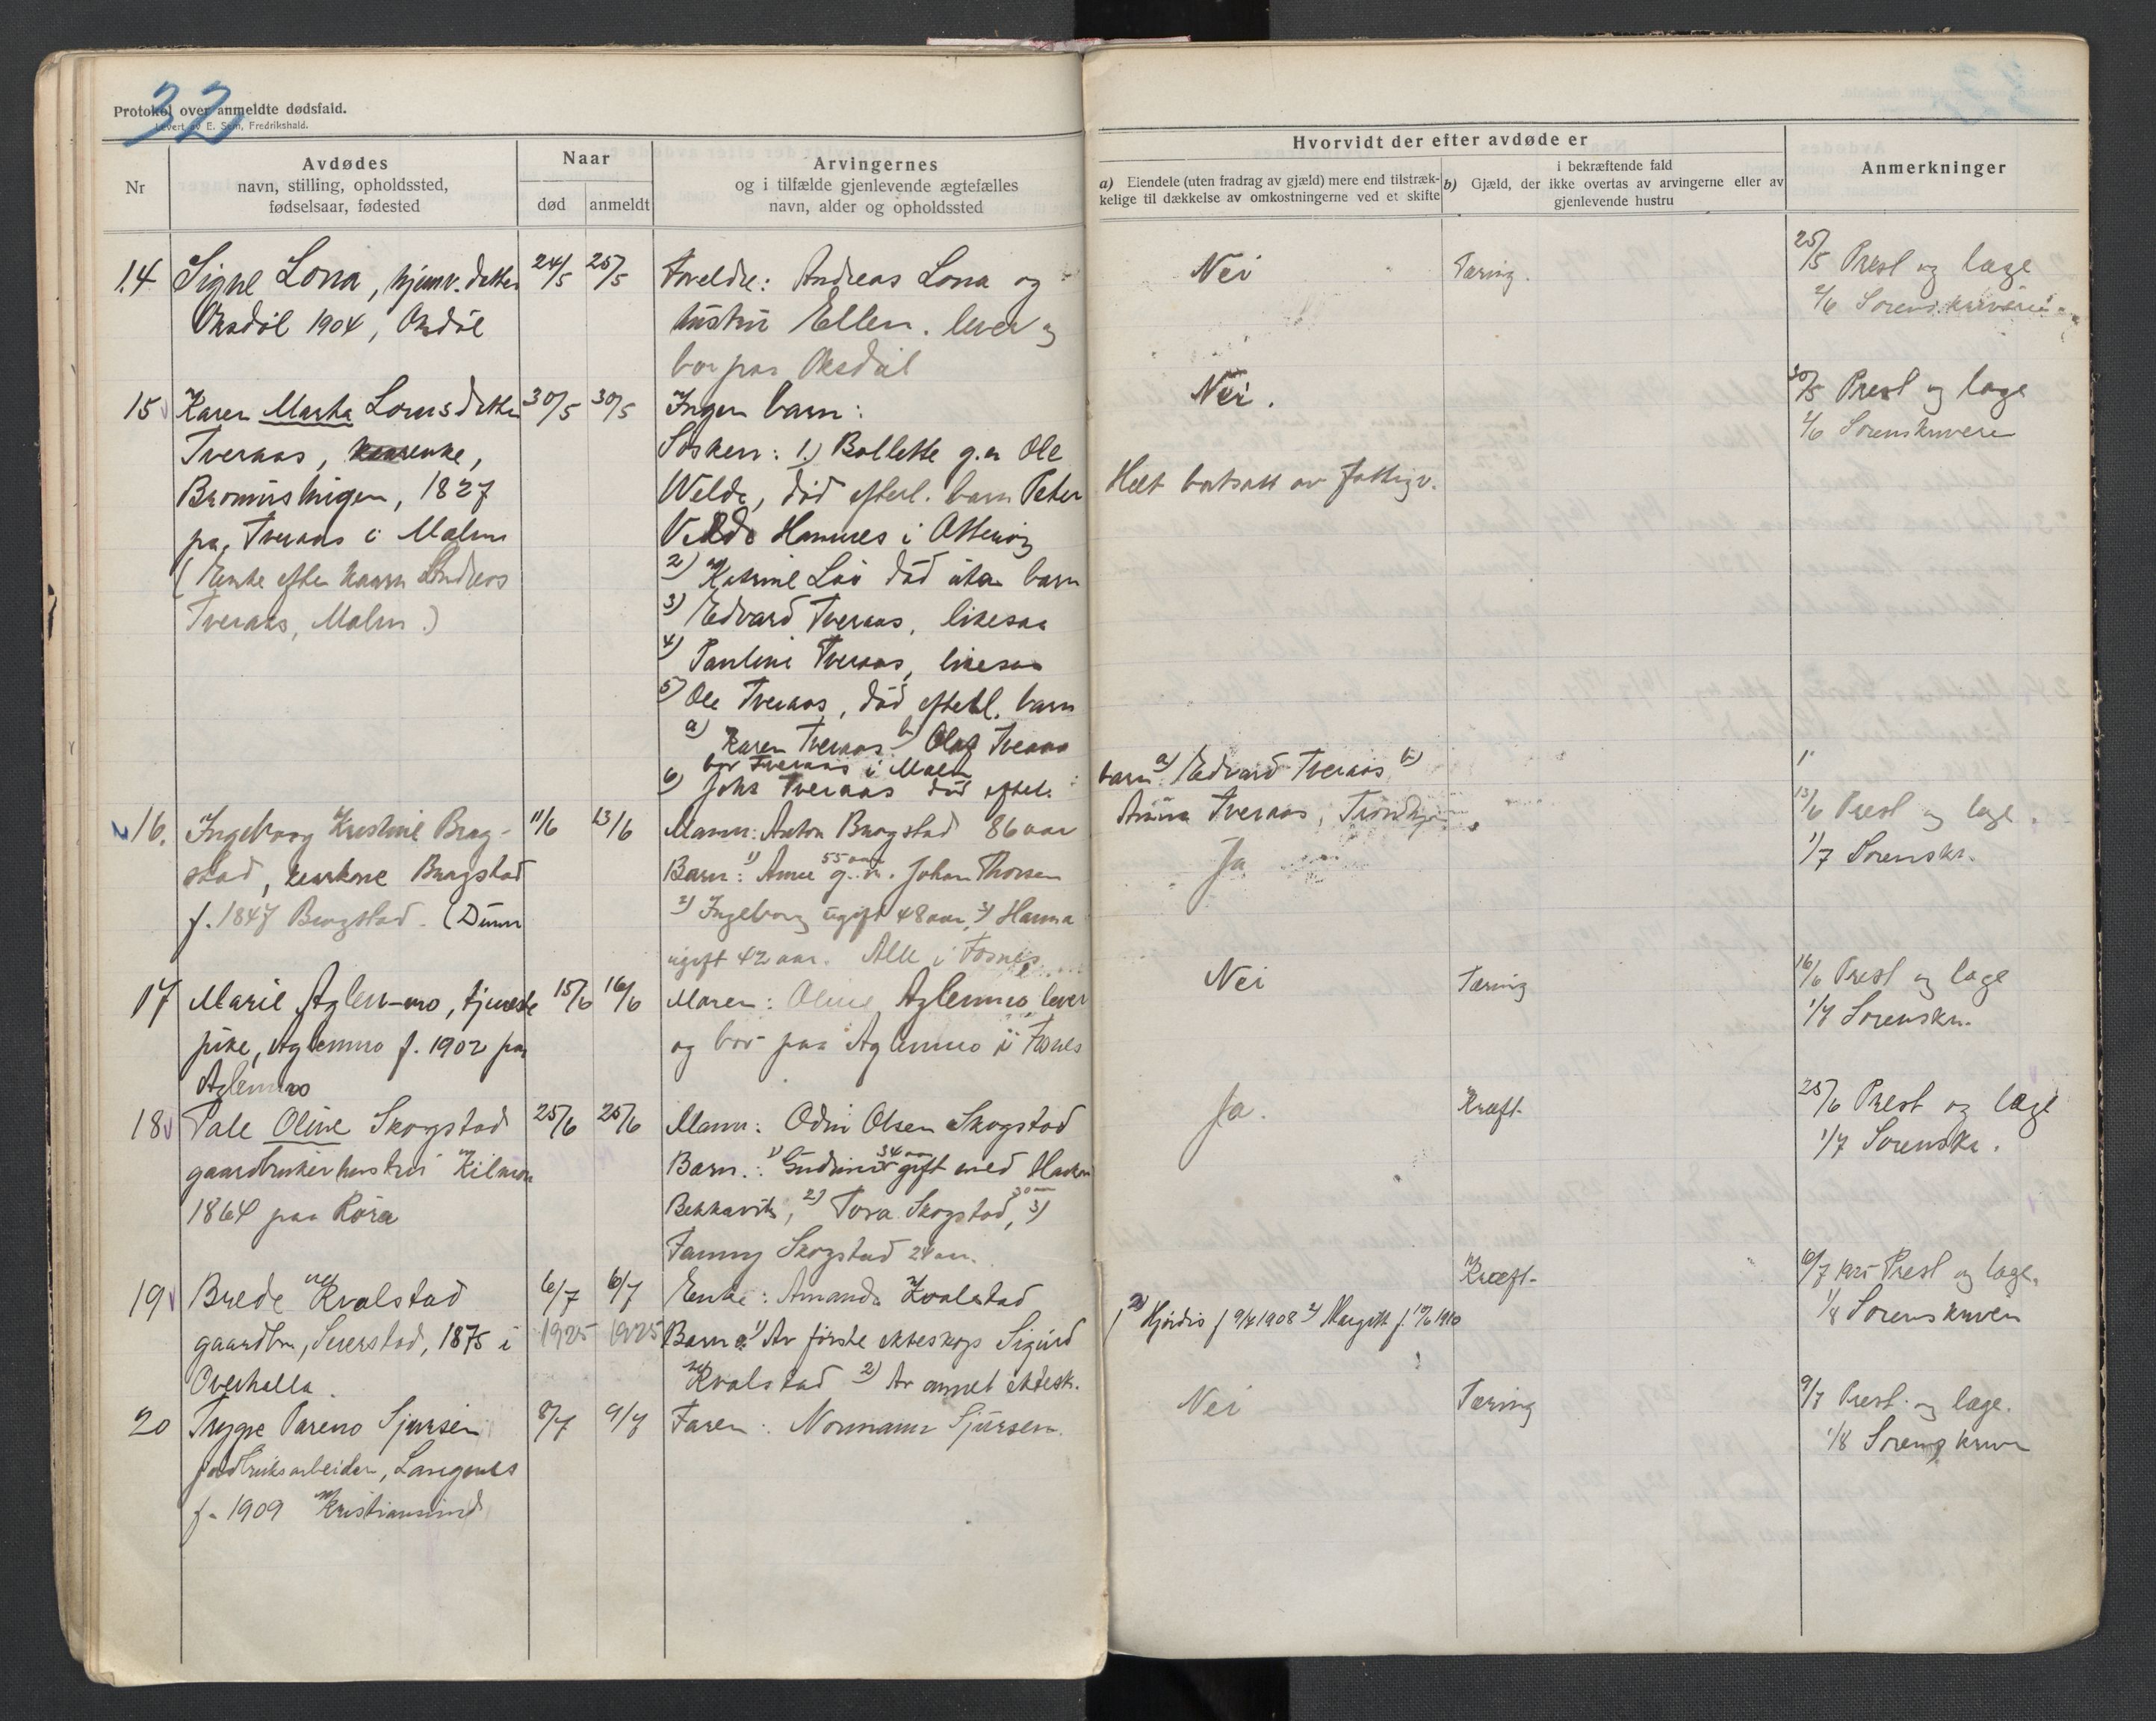 32
Protokol over anmeldte dødsfald.
Levert av E. Sem, Fredrikshald.
Nr
Avdødes
navn, stilling, opholdssted,
fødselsaar, fødested
Naar
død
anmeldt
Arvingernes
og i tilfælde gjenlevende ægtefælles
navn, alder og opholdssted
Hvorvidt der efter avdøde er
a) Eiendele (uten fradrag av gjæld) mere end tilstræk-
kelige til dækkelse av omkostningerne ved et skifte
i bekræftende fald
b) Gjæld, der ikke overtas av arvingerne eller av
gjenlevende hustru
Anmerkninger
14 Signe Lona, hjemv. datter
Oksdøl 1904, Oksdøl
24/5 25/5
Foreldre: Andreas Lona og
hustru Ellen. lever og
bor paa Oksdøl
Nei
Tæring.
25/5 Prest og læge
2/6 Sorenskriveren
15 Karen Marta Lornsdatter
Tveraas, enke,
1827
paa Tveraas i Malm
(Enke efter Andreas
Tveraas, Malm.)
30/5 30/5
Ingen barn:
Søsken: 1.) Bollette g.m Ole
Welde, død efterl. barn Peter
i Otterøy
2) Katrine død uten barn
3) Edvard Tveraas, likesaa
4) Pauline Tveraas, likesaa
5) Ole Tveraas, død efterl. barn
a) Karen Tveraas b) Olaf Tveraas
bor Tveraas i Malm
6) Johs Tveraas død efterl.
Nei.
Helt bortsatt av fattigv.
barn a) Edvard Tveraas b)
Anna Tveraas, Trondhjem
30/5 Prest og læge
2/6 Sorenskriveren
16. Ingeborg Kristine Brag-
stad, kaarkone Bragstad
f. 1847 Bragstad. (Duun
11/6 13/6
Mann: Anton Bragstad 86 aar
Barn: 1) Anne 55 aar g.m. Johan Thorsen
2) Ingeborg ugift 48 aar, 3) Hanna
ugift 42 aar. Alle i Fosnes
Ja
13/6 Prest og læge
1/7 Sorenskr.
17 Marie Aglenmo, tjeneste
pike, Aglenmo f. 1902 paa
Aglenmo
15/6 16/6
Moren: Oline Aglenmo lever
og bor paa Aglenmo i Fosnes
Nei
Tæring
16/6 Prest og læge
1/7 Sorenskr.
18 Pale Oline Skogstad
gaardbrukerhustru
1864 paa Røra
25/6 25/6
Mann: Odin Olsen Skogstad
Barn: 1) 34 aar gift med
2) Tora Skogstad, 30 aar 3)
Fanny Skogstad 24 aar.
Ja.
Kræft.
25/6 Prest og læge
1/7 Sorenskr.
19 Brede Kvalstad
gaardbr., Seierstad, 1875 i
Overhalla.
6/7 6/7
1925 1925
Enke: Amanda Kvalstad
Barn: 1) Av første ekteskap Sigurd
Kvalstad 2) Av annet ektesk.
Hjördis f 9/4 1908 Margith f. 19/6 1910
Kræft-
6/7 1925 Prest og læge.
1/8 Sorenskriveren
20 Trygve Sjursen
jordbruksarbeider, Langnes
f. 1909 Kristiansund
8/7 9/7
Faren: Normann Sjursen.
Nei
Tæring
9/7 Prest og læge.
1/8 Sorenskriver